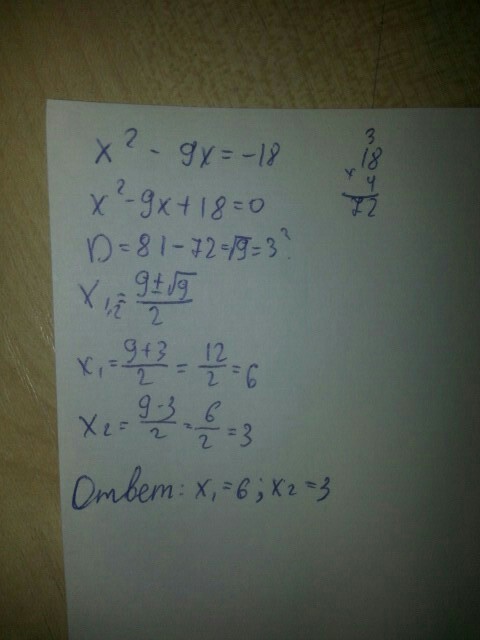 x² - 9x = -18
x² - 9x + 18 = 0
D = 81 - 72 = √9 = 3²
x₁,₂ = (9 ± √9)/2
x₁ = (9+3)/2 = 12/2 = 6
x₂ = (9-3)/2 = 6/2 = 3
Ответ: x₁ = 6; x₂ = 3
3
18
× 4
72